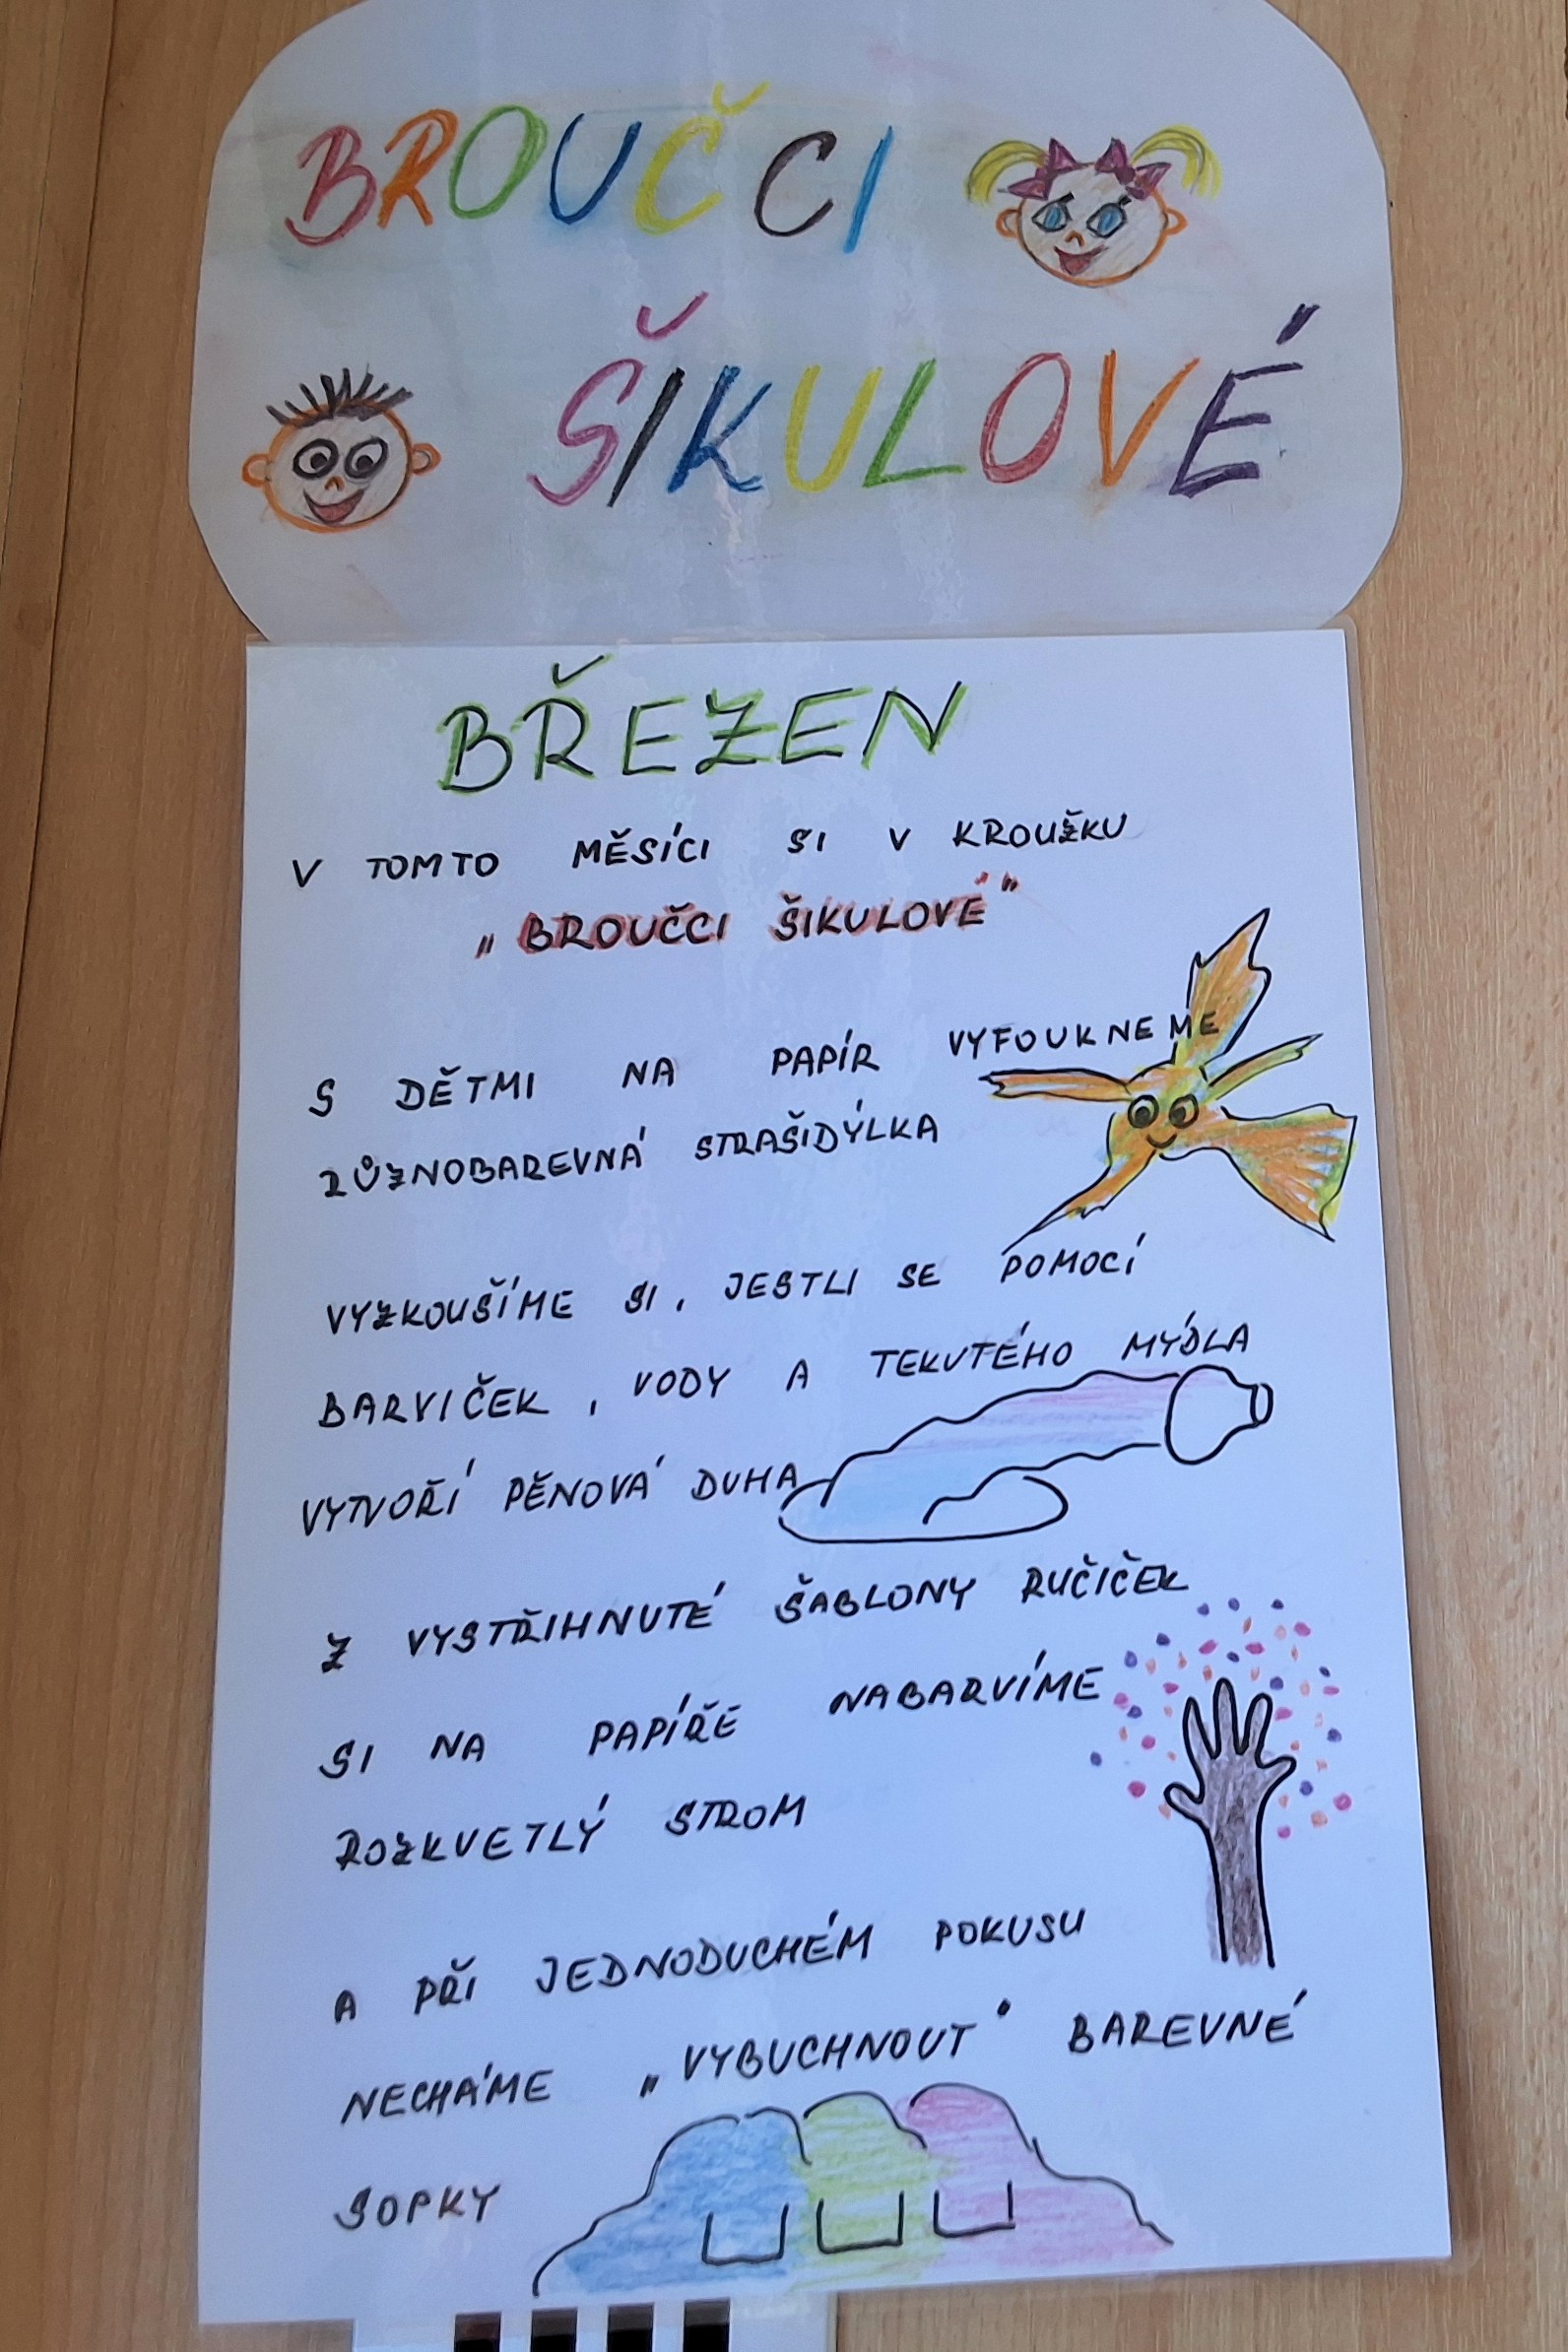 BROUČCI
ŠIKULOVÉ
BŘEZEN
V TOMTO MĚSÍCI SI V KROUŽKU
„BROUČCI ŠIKULOVÉ"
S DĚTMI NA PAPÍR VYFOUKNEME
RŮZNOBAREVNÁ STRAŠIDÝLKA
VYZKOUŠÍME SI, JESTLI SE POMOCÍ
BARVIČEK, VODY A TEKUTÉHO MÝDLA
VYTVOŘÍ PĚNOVÁ DUHA
Z VYSTŘIHNUTÉ ŠABLONY RUČIČEK
SI NA PAPÍŘE NABARVÍME
ROZKVETLÝ STROM
A PŘI JEDNODUCHÉM POKUSU
NECHÁME „VYBUCHNOUT" BAREVNÉ
SOPKY